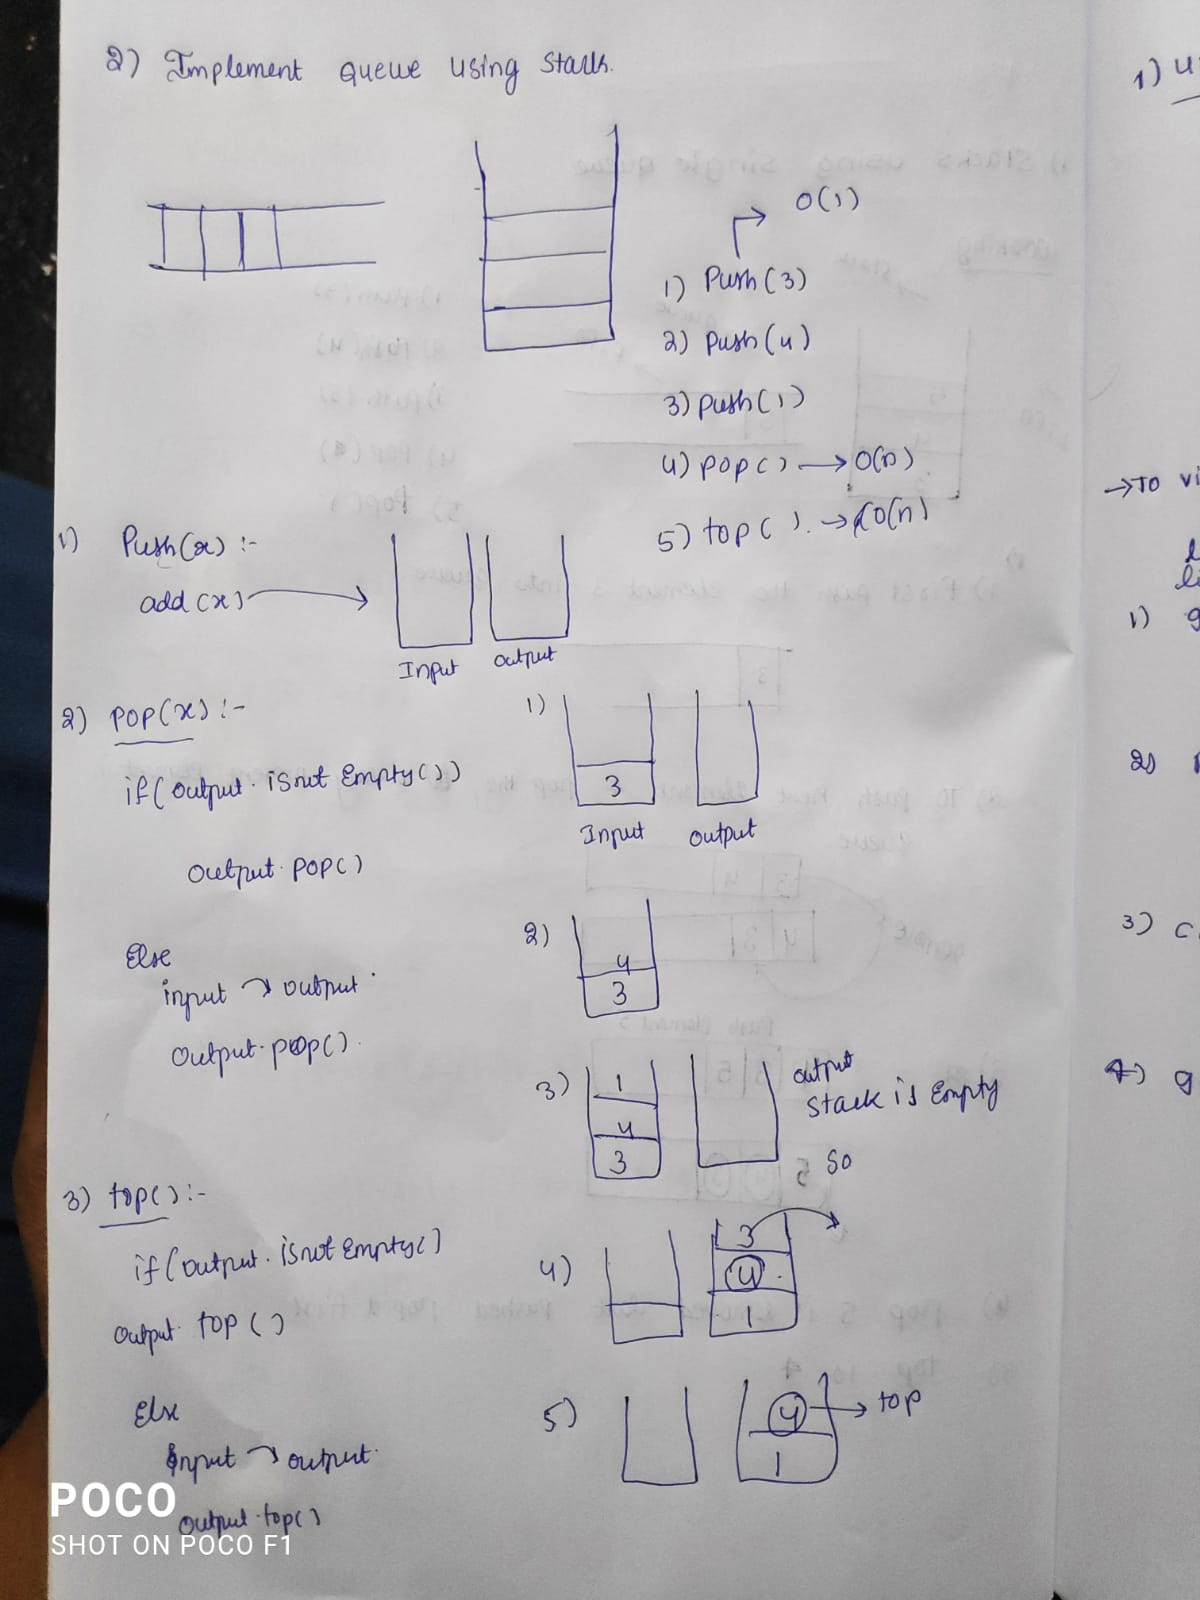 2) Implement Queue using Stack.
O(1)
1) Push(3)
2) Push(4)
3) Push(1)
4) pop() → O(n)
5) top(). → O(n)
1) Push(x) :-
add(x) →
Input Output
2) pop(x) :-
if(output. isnot Empty())
output. pop()
Else
input → output.
output. pop().
1)
3
Input output
2)
4
3
3)
1
4
3
output
Stack is Empty
So
4)
3
4
1
5)
4 → top
1
3) top() :-
if(output. isnot Empty()
output. top()
Else
Input → output.
output.top()
1)
→ TO
1)
2)
3) C
4) g
POCO
SHOT ON POCO F1